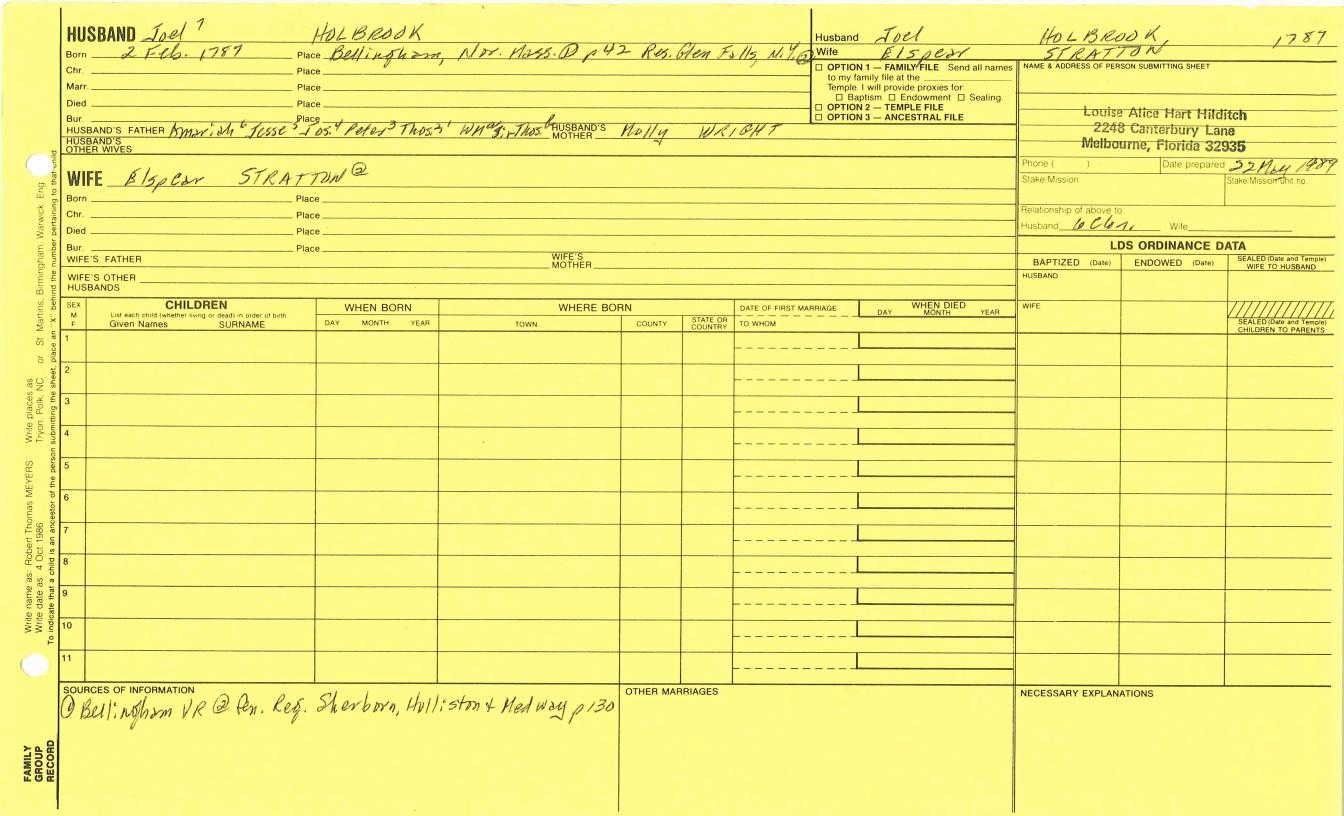 HUSBAND Joel 7 HOLBROOK
Born 2 Feb. 1787 Place Bellingham, Nor. Mass. ① p42 Res. Glen Falls, N.Y. ②
Chr. Place
Marr. Place
Died Place
Bur. Place
HUSBAND'S FATHER Amariah 6 Jesse 5 Jos 4 Peter 3 Thos 2 HUSBAND'S MOTHER Molly WRIGHT
HUSBAND'S OTHER WIVES
Husband Joel HOLBROOK, 1787
Wife Elspear STRATTON
☐ OPTION 1 — FAMILY FILE Send all names
to my family file at the
Temple. I will provide proxies for:
☐ Baptism ☐ Endowment ☐ Sealing
☐ OPTION 2 — TEMPLE FILE
☐ OPTION 3 — ANCESTRAL FILE
NAME & ADDRESS OF PERSON SUBMITTING SHEET
Louise Alice Hart Hilditch
2248 Canterbury Lane
Melbourne, Florida 32935
Phone ( ) Date prepared 22 May 1989
Stake/Mission Stake/Mission unit no.
Relationship of above to
Husband Wife
WIFE Elspear STRATTON ②
Born Place
Chr. Place
Died Place
Bur. Place
WIFE'S FATHER WIFE'S MOTHER
WIFE'S OTHER HUSBANDS
LDS ORDINANCE DATA
BAPTIZED (Date) ENDOWED (Date) SEALED (Date and Temple) WIFE TO HUSBAND
HUSBAND
WIFE
SEALED (Date and Temple) CHILDREN TO PARENTS
SEX M F
CHILDREN
List each child (whether living or dead) in order of birth
Given Names SURNAME
WHEN BORN
DAY MONTH YEAR
WHERE BORN
TOWN COUNTY STATE OR COUNTRY
DATE OF FIRST MARRIAGE
TO WHOM
WHEN DIED
DAY MONTH YEAR
1
2
3
4
5
6
7
8
9
10
11
SOURCES OF INFORMATION
① Bellingham VR ② Gen. Reg. Sherborn, Holliston & Medway p130
OTHER MARRIAGES
NECESSARY EXPLANATIONS
Write name as: Robert Thomas MEYERS Write places as: Tryon, Polk, NC or St. Martins, Birmingham, Warwick, Eng.
Write date as: 4 Oct 1986
To indicate that a child is an ancestor of the person submitting the sheet, place an "X" behind the number pertaining to that child.
FAMILY GROUP RECORD